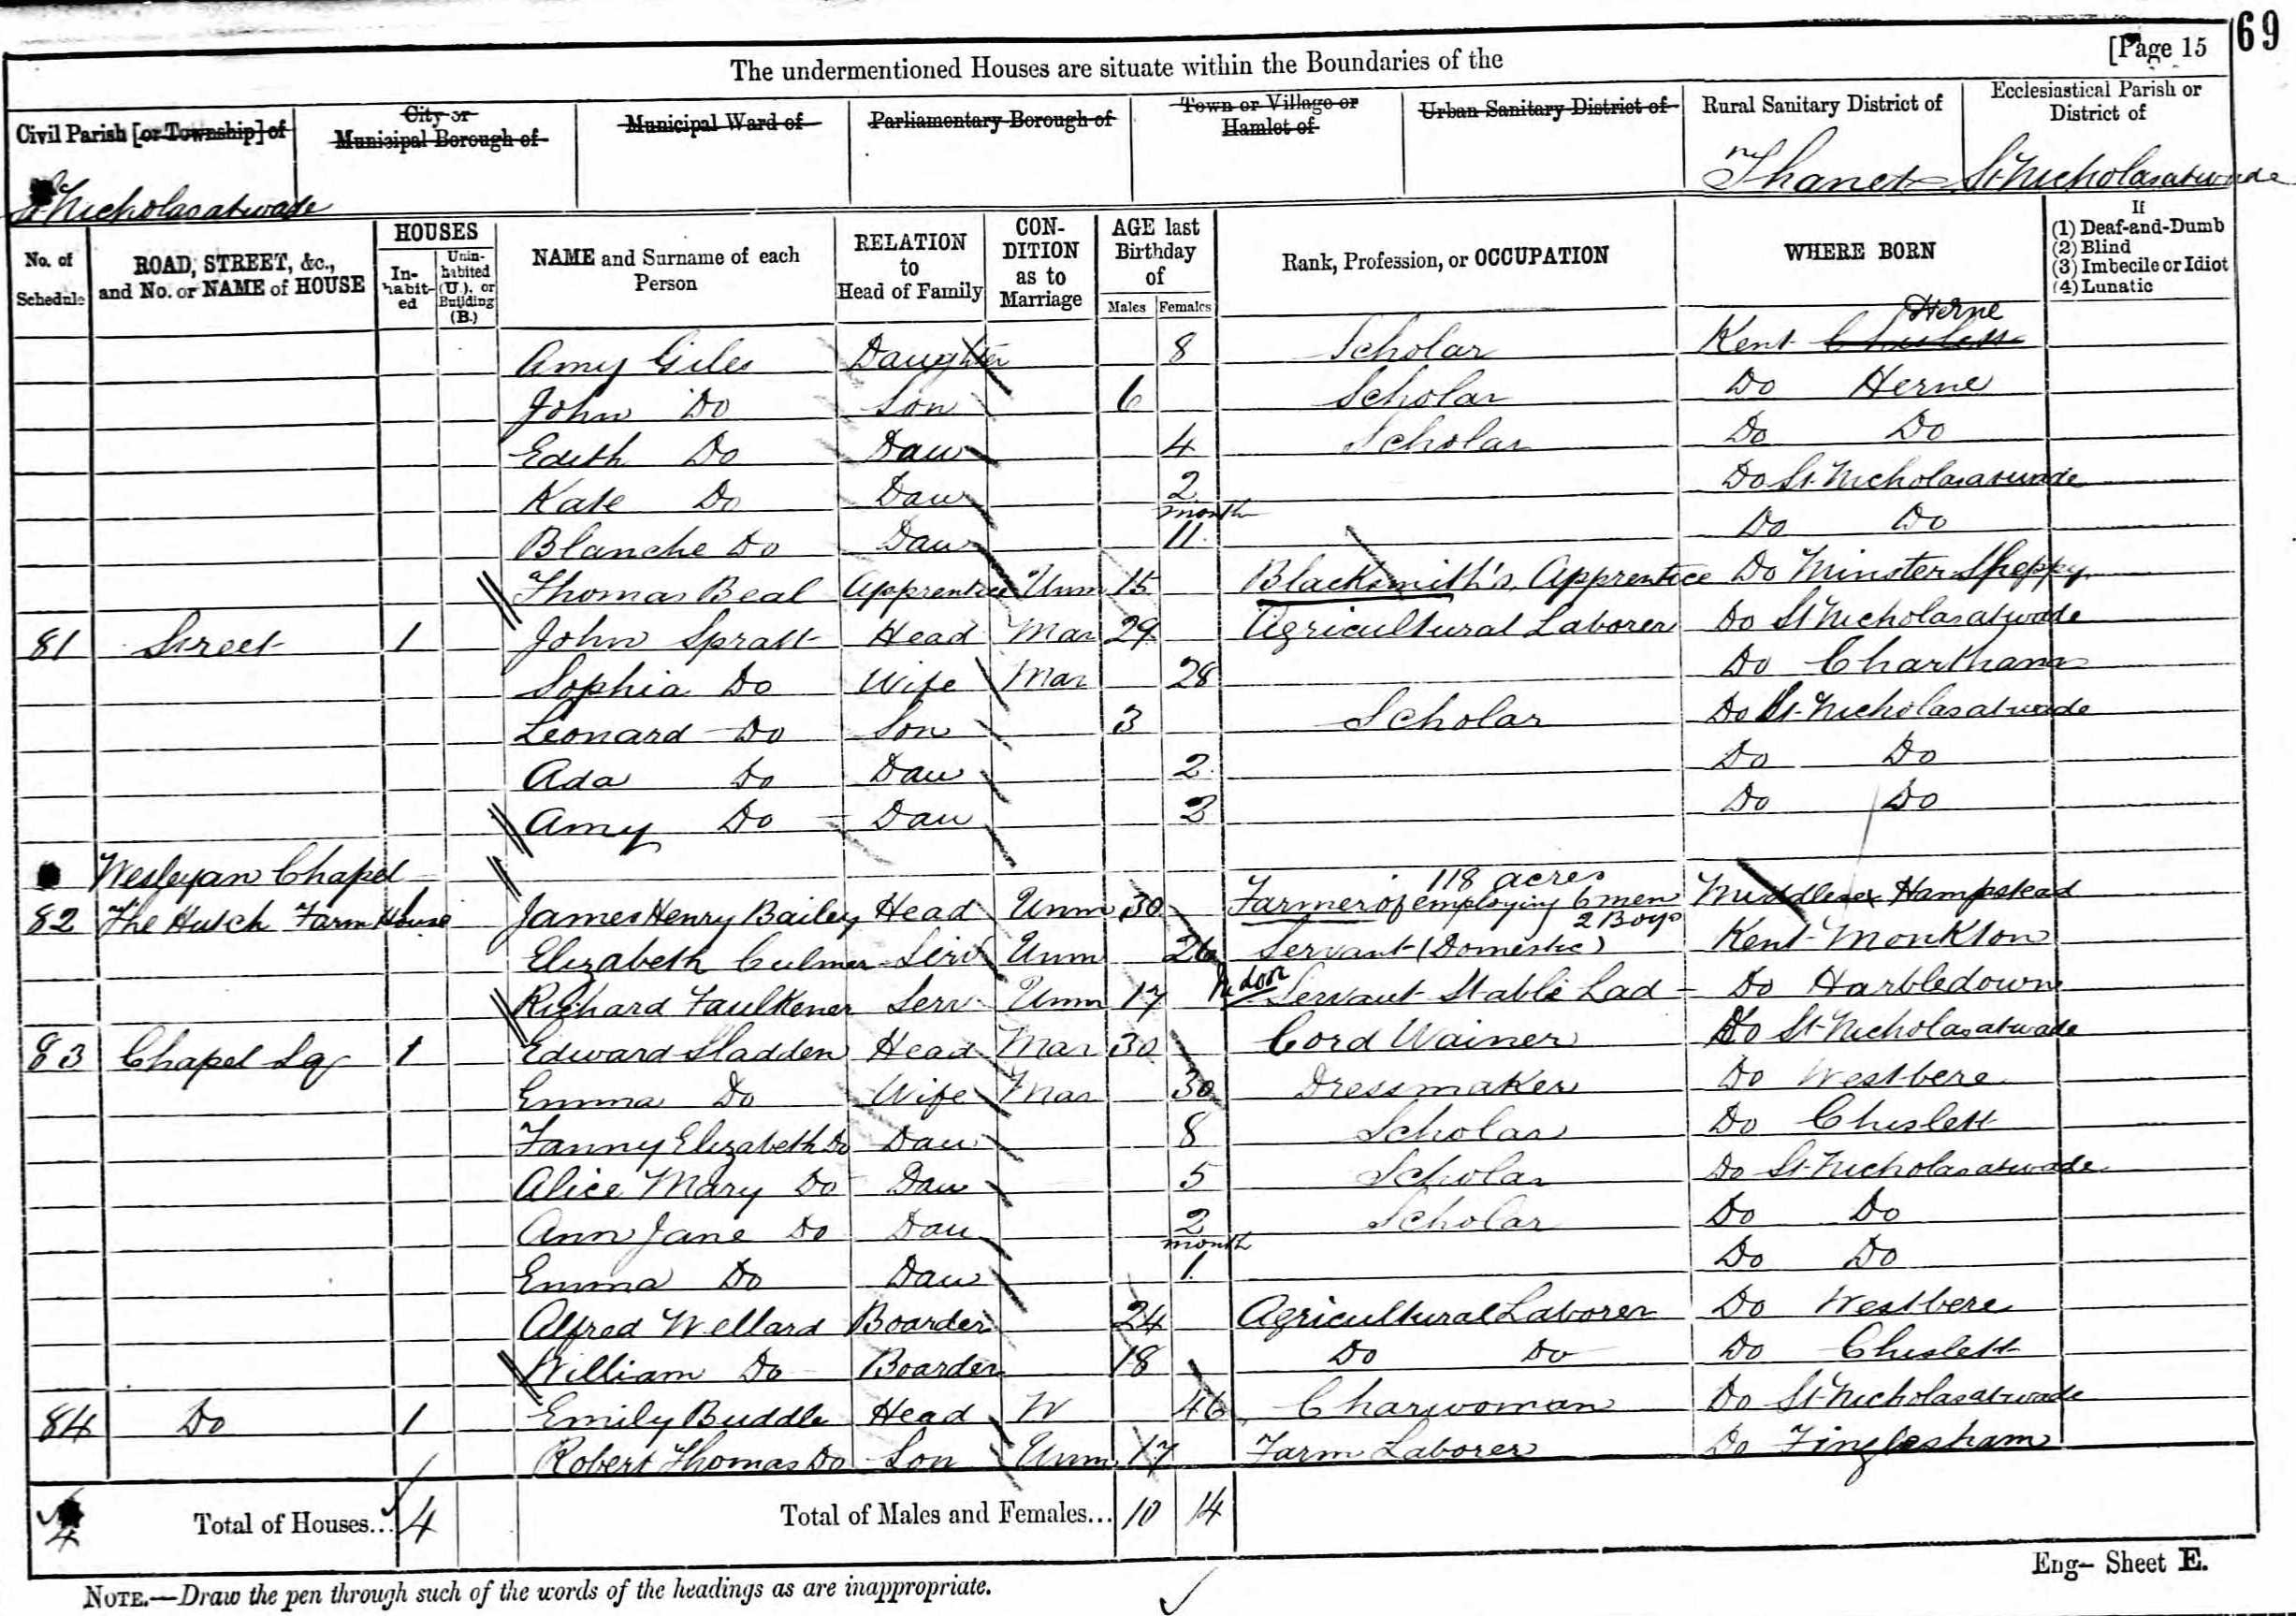 69
[Page 15
The undermentioned Houses are situate within the Boundaries of the
Civil Parish [or Township] of
City or Municipal Borough of
Municipal Ward of
Parliamentary Borough of
Town or Village or Hamlet of
Urban Sanitary District of
Rural Sanitary District of
Ecclesiastical Parish or District of
St Nicholasatwade
Thanet
St Nicholasatwade
No. of Schedule
ROAD, STREET, &c., and No. or NAME of HOUSE
HOUSES
In-habit-ed
Unin-habited (U), or Building (B.)
NAME and Surname of each Person
RELATION to Head of Family
CON-DITION as to Marriage
AGE last Birthday of
Males
Females
Rank, Profession, or OCCUPATION
WHERE BORN
If
(1) Deaf-and-Dumb
(2) Blind
(3) Imbecile or Idiot
(4) Lunatic
Amy Giles Daughter 8 Scholar Kent Chislett Herne
John Do Son 6 Scholar Do Herne
Edith Do Daur 4 Scholar Do Do
Kate Do Daur 2 Do St Nicholasatwade
Blanche Do Daur month 11 Do Do
Thomas Beal Apprentice Unm 15 Blacksmith's Apprentice Do Minster Sheppy
81 Street 1 John Spratt Head Mar 29 Agricultural Laborer Do St Nicholasatwade
Sophia Do Wife Mar 28 Do Chartham
Leonard Do Son 3 Scholar Do St Nicholasatwade
Ada Do Dau 2 Do Do
Amy Do Dau 3 Do Do
Wesleyan Chapel
82 The Hutch Farm House 1 James Henry Bailey Head Unm 30 Farmer of 118 acres employing 6 men 2 Boys Middlesex Hampstead
Elizabeth Culmer Serv Unm 26 Servant (Domestic) Kent Monkton
Richard Faulkener Serv Unm 17 Indoor Servant Stable Lad Do Harbledown
83 Chapel Sq 1 Edward Sladden Head Mar 30 Cord Wainer Do St Nicholasatwade
Emma Do Wife Mar 30 Dressmaker Do Westbere
Fanny Elizabeth Do Dau 8 Scholar Do Chislett
Alice Mary Do Dau 5 Scholar Do St Nicholasatwade
Ann Jane Do Dau 2 Scholar Do Do
Emma Do Dau month 1 Do Do
Alfred Wellard Boarder 24 Agricultural Laborer Do Westbere
William Do Boarder 18 Do Do Do Chislett
84 Do 1 Emily Buddle Head W 46 Charwoman Do St Nicholasatwade
Robert Thomas Do Son Unm 17 Farm Laborer Do Finglesham
4 Total of Houses... 4 Total of Males and Females... 10 14
Eng- Sheet E.
NOTE.—Draw the pen through such of the words of the headings as are inappropriate.